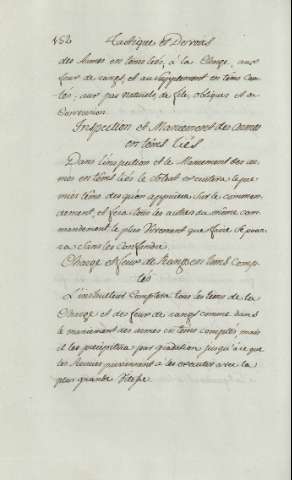 152 Tactique et Devoirs
des Armes en têms liés, à la Charge, aux
feux de rangs, et au Supplement en têms Com-
tés, aux pas naturels, de file, obliques et en
Conversion.
Inspection et Maniement des armes
en têms liés
Dans l'inspection et le Maniement des ar-
mes en têms liés le Soldat executera le pre-
mier têms dès qu'on appuiera Sur le commen-
dement, et fera tous les autres du même com-
mandement le plus Vitement que faire se pour-
ra Sans les Confondre.
Charge et feux de Rangs en tems Comp-
tés
L'instructeur Comptera tous les tems de la
Charge et des feux de rangs comme dans
le maniement des armes en tems comptés, mais
il les précipitera par gradation jusqu'à ce que
les Recrues parviennent à les executer avec la
plus grande Vitesse